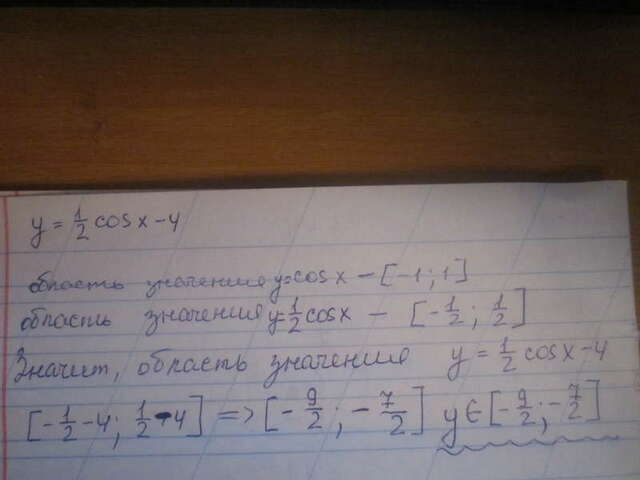 y = 1/2 cos x - 4
область значения y=cos x - [-1; 1]
область значения y=1/2 cos x - [-1/2; 1/2]
Значит, область значения y = 1/2 cos x - 4
[-1/2 - 4; 1/2 - 4] => [-9/2; -7/2] y ∈ [-9/2; -7/2]